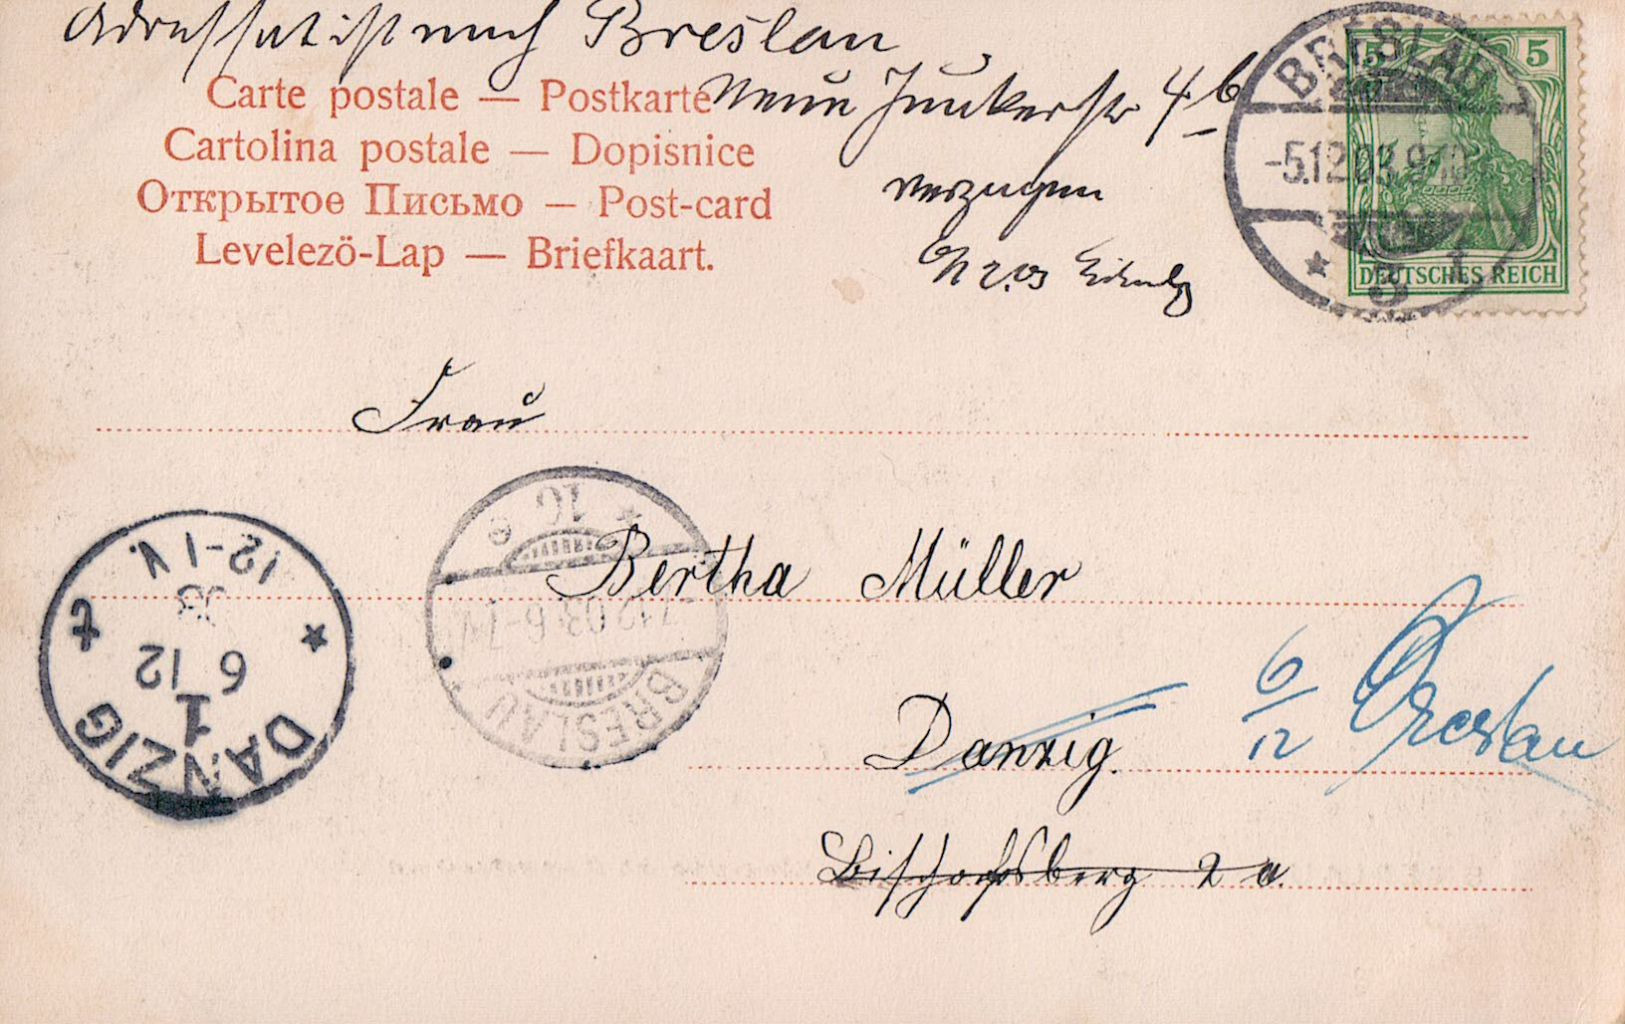 Adressat ist nach Breslau
Carte postale — Postkarte
Neue Junkerstr 4b
Cartolina postale — Dopisnice
Открытое Письмо — Post-card
verzogen
Levelezö-Lap — Briefkaart.
BRESLAU
-5.12.03.9-10
5
5
DEUTSCHES REICH
Frau
Bertha Müller
Danzig.
6/12 Breslau
Bischofsberg 2a.
BRESLAU
7.12.03.6-7
* 1c e
DANZIG
1
6 12
03
12-1 N.